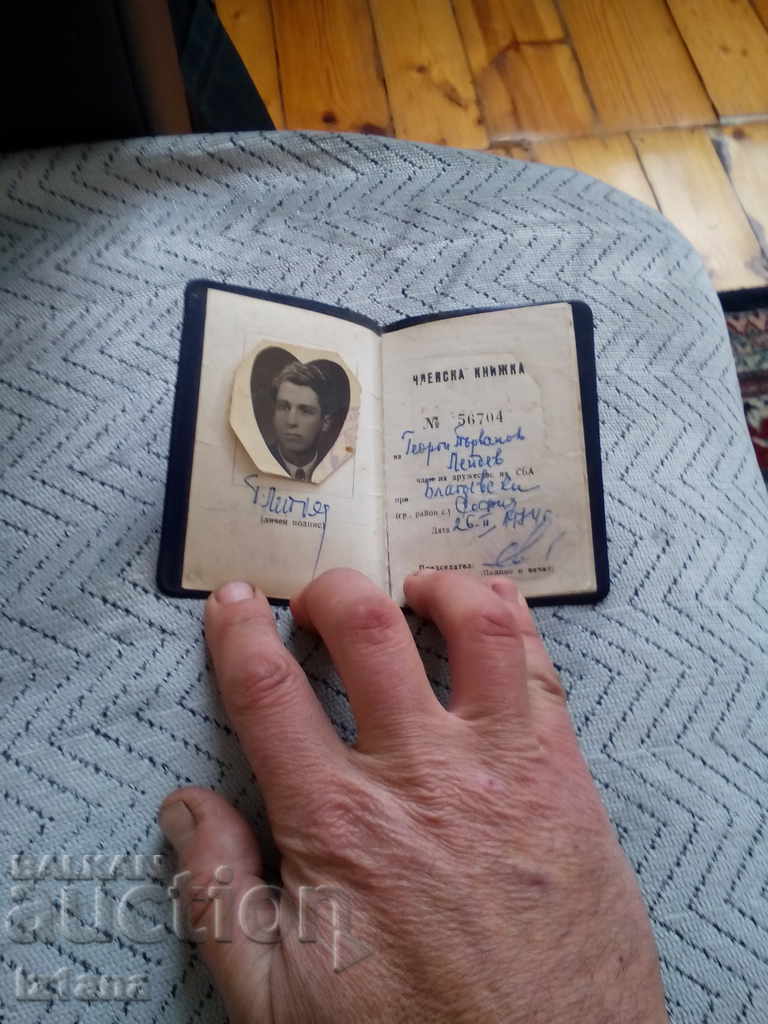 (личен подпис)
ЧЛЕНСКА КНИЖКА
№ 56704
на Георги Първанов
член на дружество на СБА
при
(гр., район с.) София
Дата 26.II
Председател:
(Подпис и печат)
BALKAN
auction
iztana